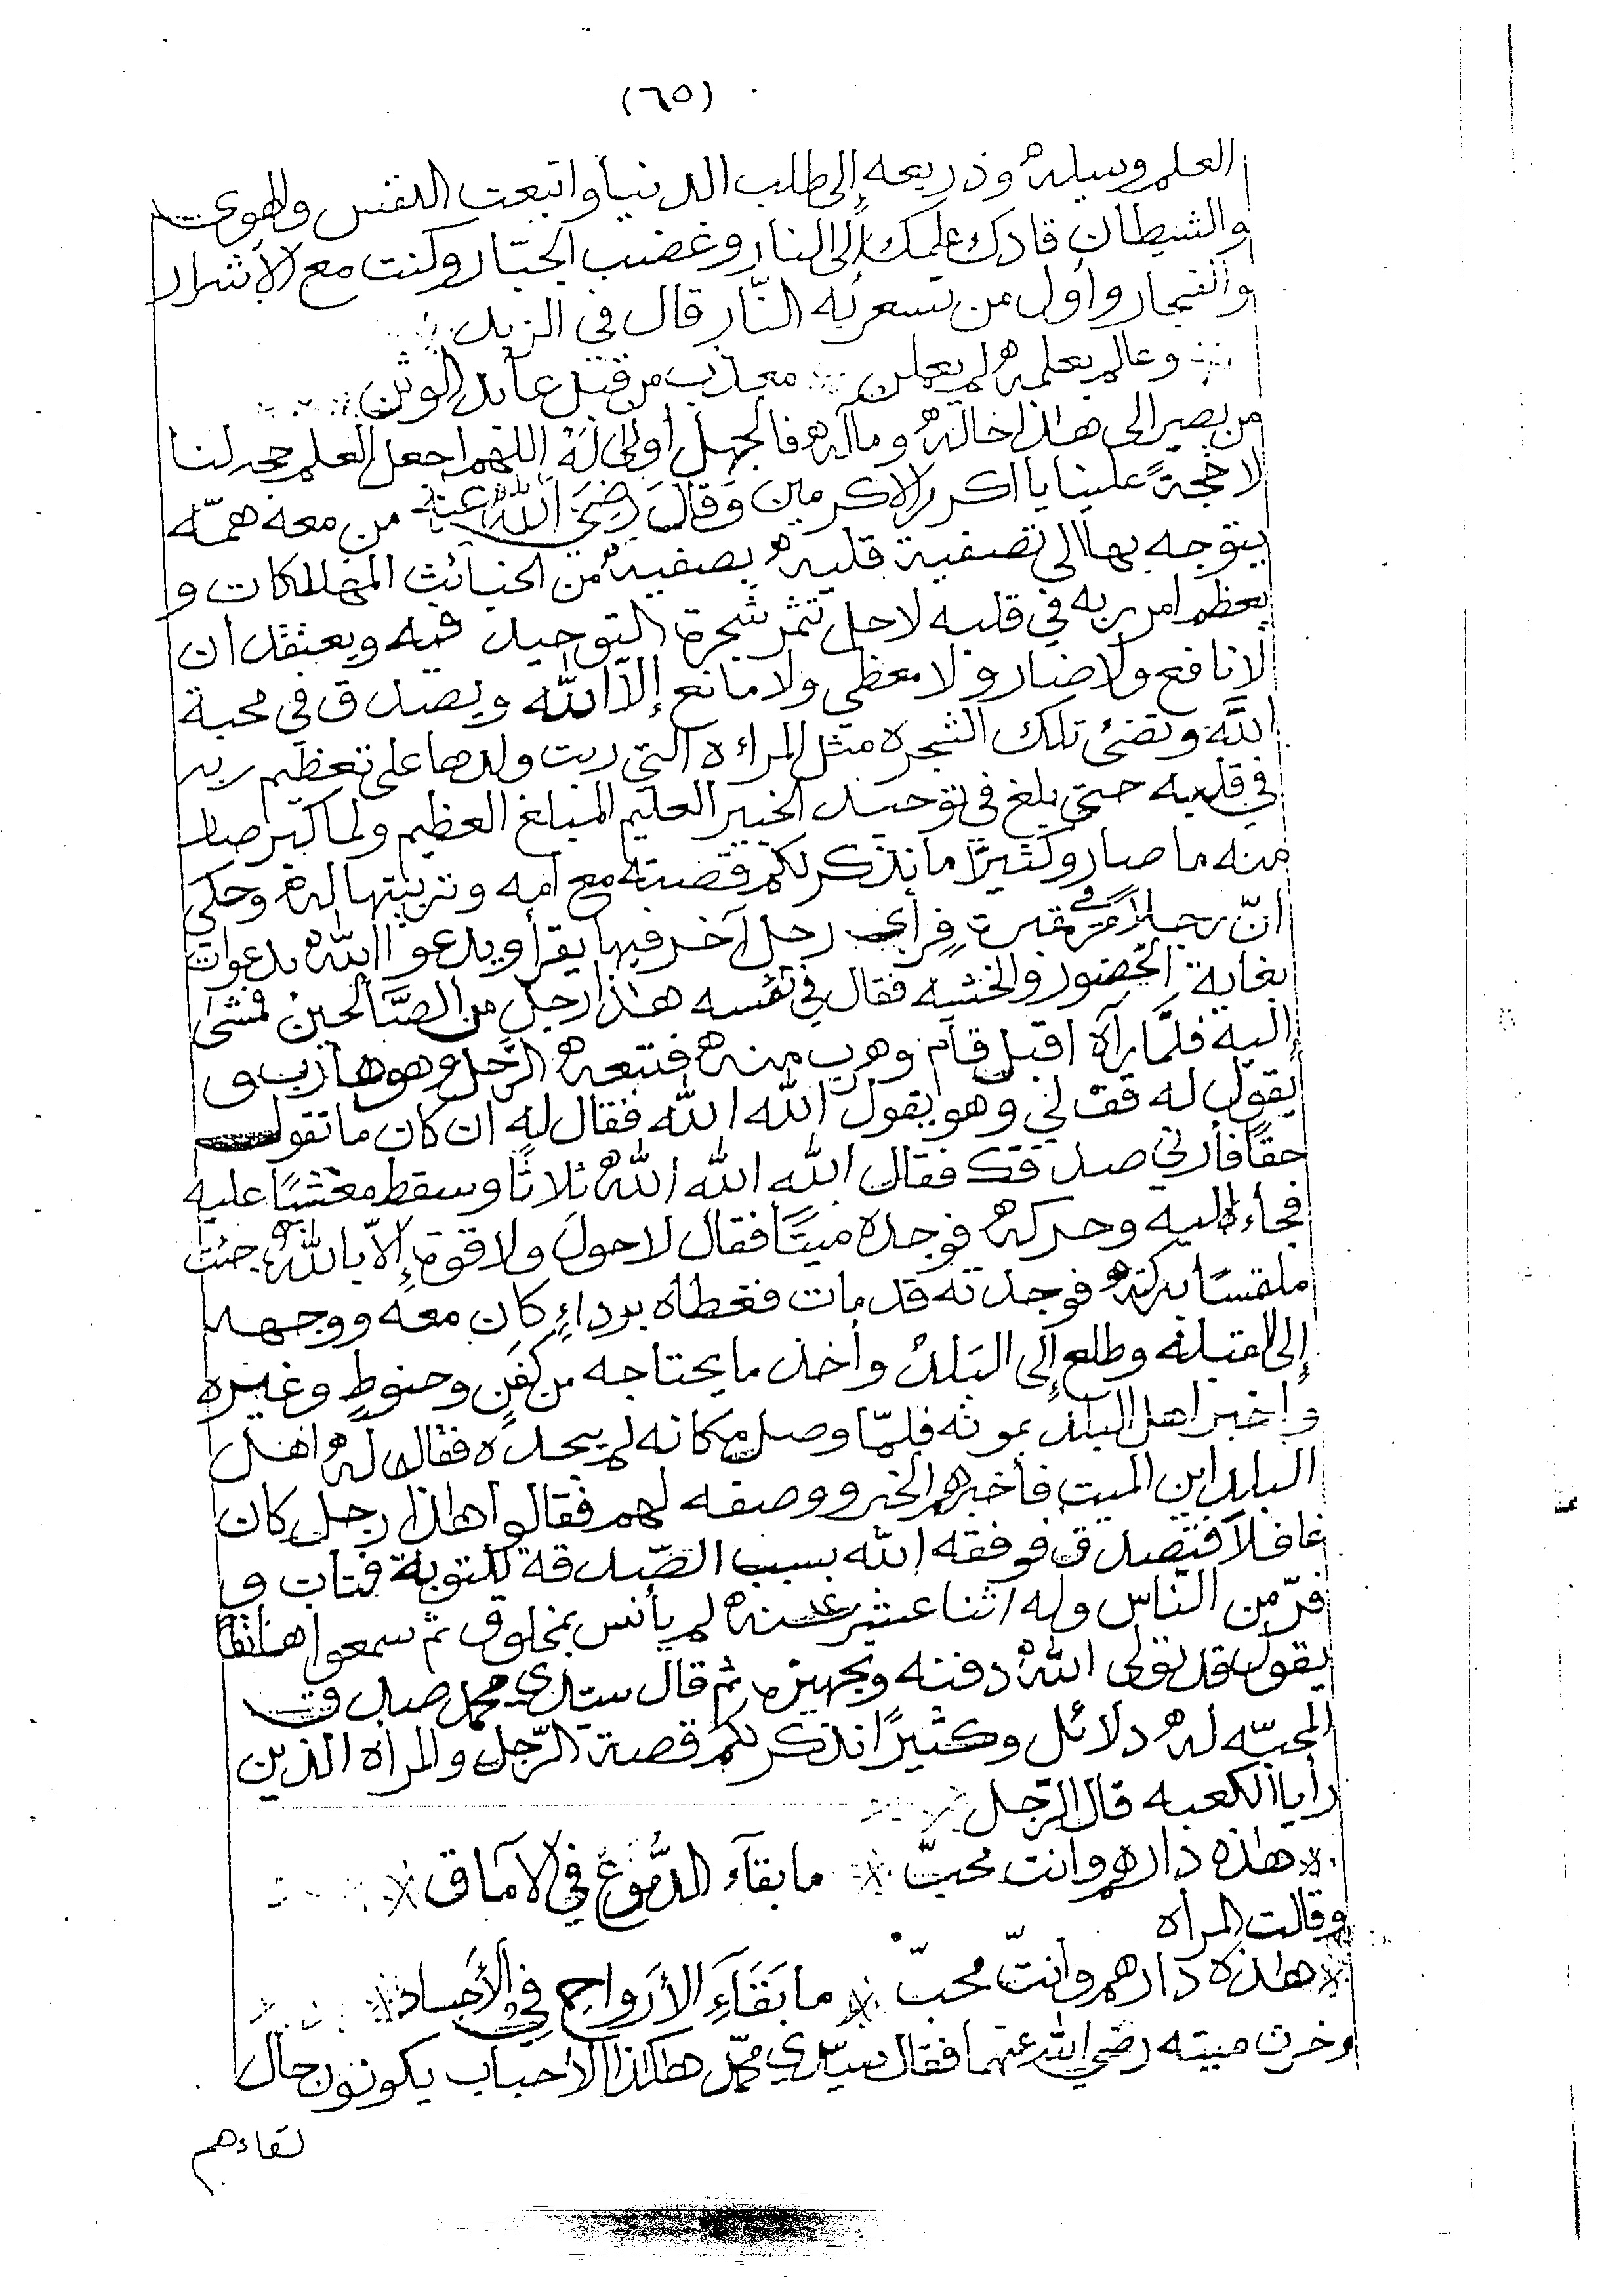 (٦٥)
العلم وسيله وذريعه إلى طلب الدنيا واتبعت النفس والهوى
والشيطان قادك علمك إلى النار وغضب الجبّار وكنت مع الأشرار
والفجار وأول من تسعر به النّار قال في الزبد
وعالم بعلمه لم يعملن معذب من قبل عابد الوثن
من يصير الى هاذا حاله ومآله فالجهل أولى له اللهم اجعل العلم حجه لنا
لا حجةً علينا يا اكرم الاكرمين وقال رضي الله عنه من معه همّه
يتوجه بها الى تصفية قلبه بصفيه من الخبائث المهلكات و
يعظم امر ربه في قلبه لاجل تثمر شجرة التوحيد فيه ويعتقد ان
لا نافع ولا ضار ولا معطي ولا مانع إلا الله ويصدق في محبة
الله وتضئ تلك الشجره مثل المراءه التي ربت ولدها على تعظيم ربه
في قلبه حتى بلغ في توحيد الخبير العليم المبلغ العظيم ولما كبر صار
منه ما صار وكثيرًا ما نذكر لكم قصته مع امه وتربيتها له وحكى
انّ رجلا مرّ في مقبرة فرأى رجل آخر فيها يقرأ ويدعو الله بدعوات
بغاية الحضور والخشيه فقال في نفسه هاذا رجل من الصّالحين فمشى
إليه فلمّا رآه اقبل قام وهرب منه فتبعه الرّجل وهو هارب و
يقول له قف لي وهو يقول الله الله فقال له ان كان ما تقول
حقًا فأرني صدقك فقال الله الله الله ثلاثًا وسقط مغشيًا عليه
فجاء اليه وحركه فوجده ميتًا فقال لا حول ولا قوة إلاّ بالله جئت
ملتمسًا بركته فوجدته قد مات فغطاه برداءٍ كان معه ووجهه
إلى القبله وطلع إلى البلد وأخذ ما يحتاجه من كفن وحنوطٍ وغيره
واخبر اهل البلد بموته فلمّا وصل مكانه لم يجده فقال له اهل
البلد اين الميت فأخبرهم الخبر ووصفه لهم فقالوا هاذا رجل كان
غافلاً فتصدق فوفقه الله بسبب الصّدقة للتوبة فتاب و
فرّ من النّاس وله اثنا عشر سنه لم يأنس بمخلوق ثم سمعوا هاتفًا
يقول قد تولى الله دفنه وتجهيزه ثم قال سيدي محمد صدق
المحبّه له دلائل وكثيرًا نذكر لكم قصة الرّجل والمرأه الذين
رأيا الكعبه قال الرّجل
هاذه دارهم وانت محبّ ما بقآء الدّموع في الآماق
وقالت المرأه
هاذه دارهم وانت محبّ ما بَقَآءِ الأرواح في الأجساد
وخرت ميته رضي الله عنهما فقال سيدي محمّد هاكذا الاحباب يكونو رجال
لقاءهم